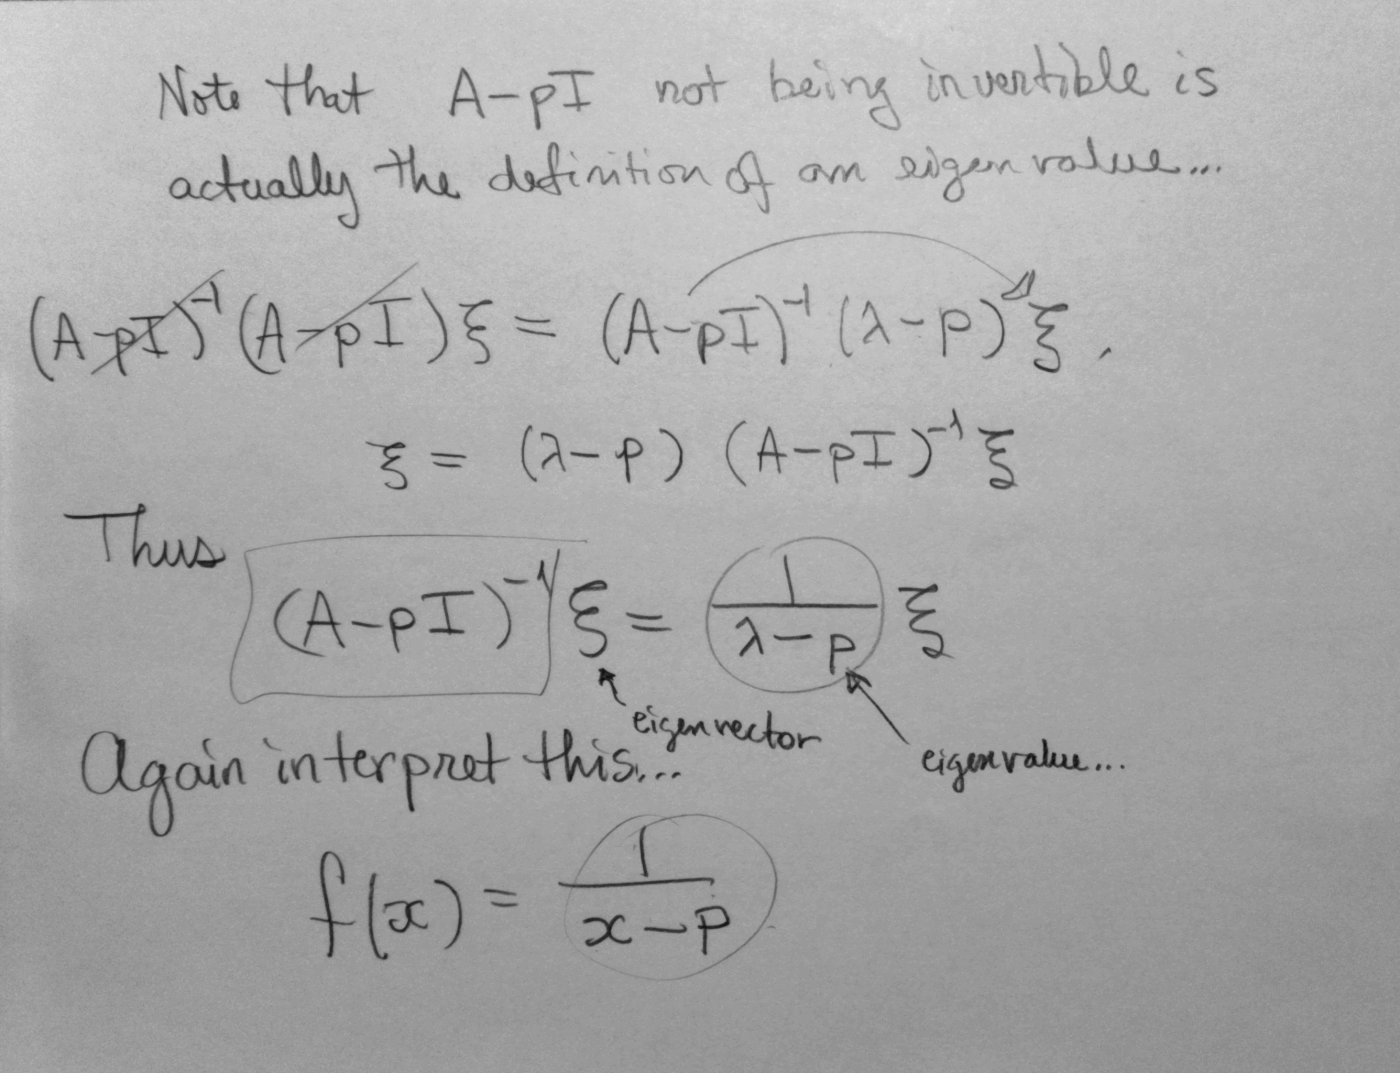 Note that A-pI not being invertible is
actually the definition of an eigenvalue...
(A-pI)⁻¹(A-pI)ξ = (A-pI)⁻¹(λ-p)ξ.
ξ = (λ-p) (A-pI)⁻¹ξ
Thus
(A-pI)⁻¹ξ = 1/(λ-p) ξ
eigenvector
eigenvalue...
Again interpret this...
f(x) = 1/(x-p)